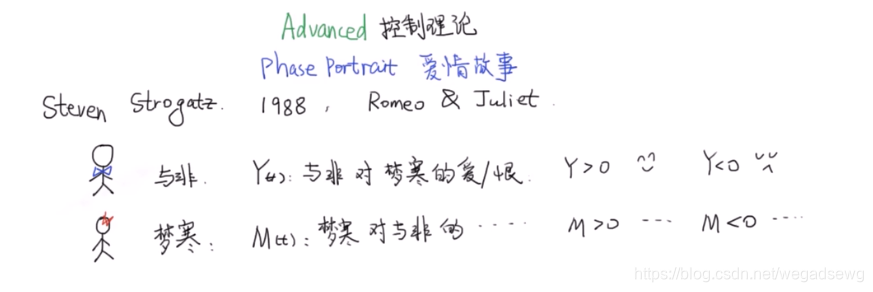 Advanced 控制理论
Phase Portrait 爱情故事
Steven Strogatz. 1988, Romeo & Juliet.
与非. Y(t): 与非对梦寒的爱/恨. Y>0 Y<0
梦寒: M(t): 梦寒对与非的 ····· M>0 ··· M<0 ····
https://blog.csdn.net/wegadsewg